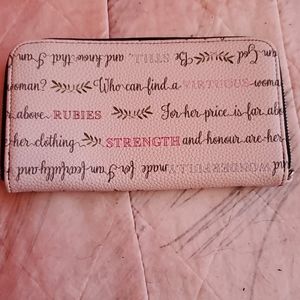 am God. Be STILL, and know that I am
woman? Who can find a VIRTUOUS woman
above RUBIES For her price is far abo
her clothing STRENGTH and honour are her
and WONDERFULLY made for I am fearfully and